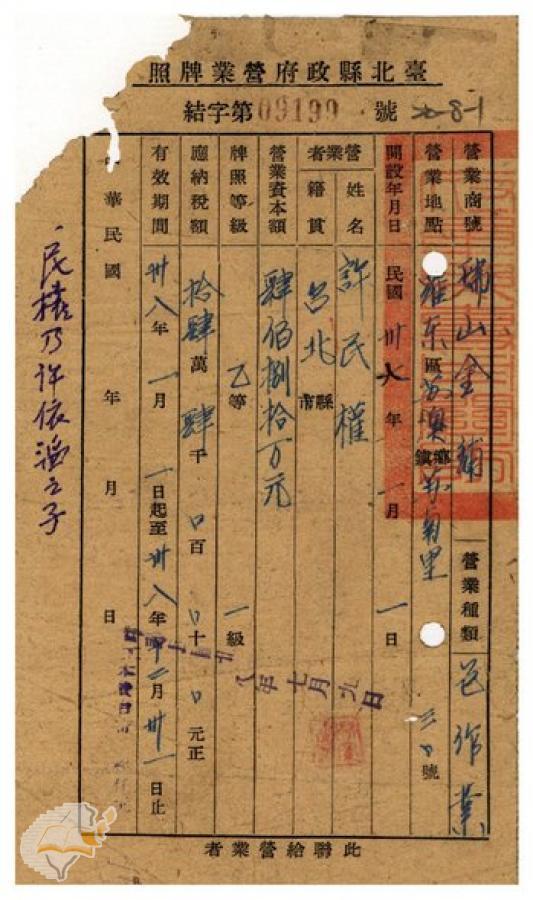 臺北縣政府營業牌照
結字第09199號
營業商號 瑞山金舖 營業種類 包作業
營業地點 羅東區蘇澳鎮蘇南里 三〇號
開設年月日 民國卅八年一月一日
營業者 姓名 許民權
籍貫 台北縣市
營業資本額 肆佰捌拾万元
牌照等級 乙等一級
應納稅額 拾肆萬肆千〇百〇十〇元正
有效期間 卅八年一月一日起至卅八年十二月卅一日止
華民國 年 月 日
八年七月九日
民權乃許依滿之子
此聯給營業者